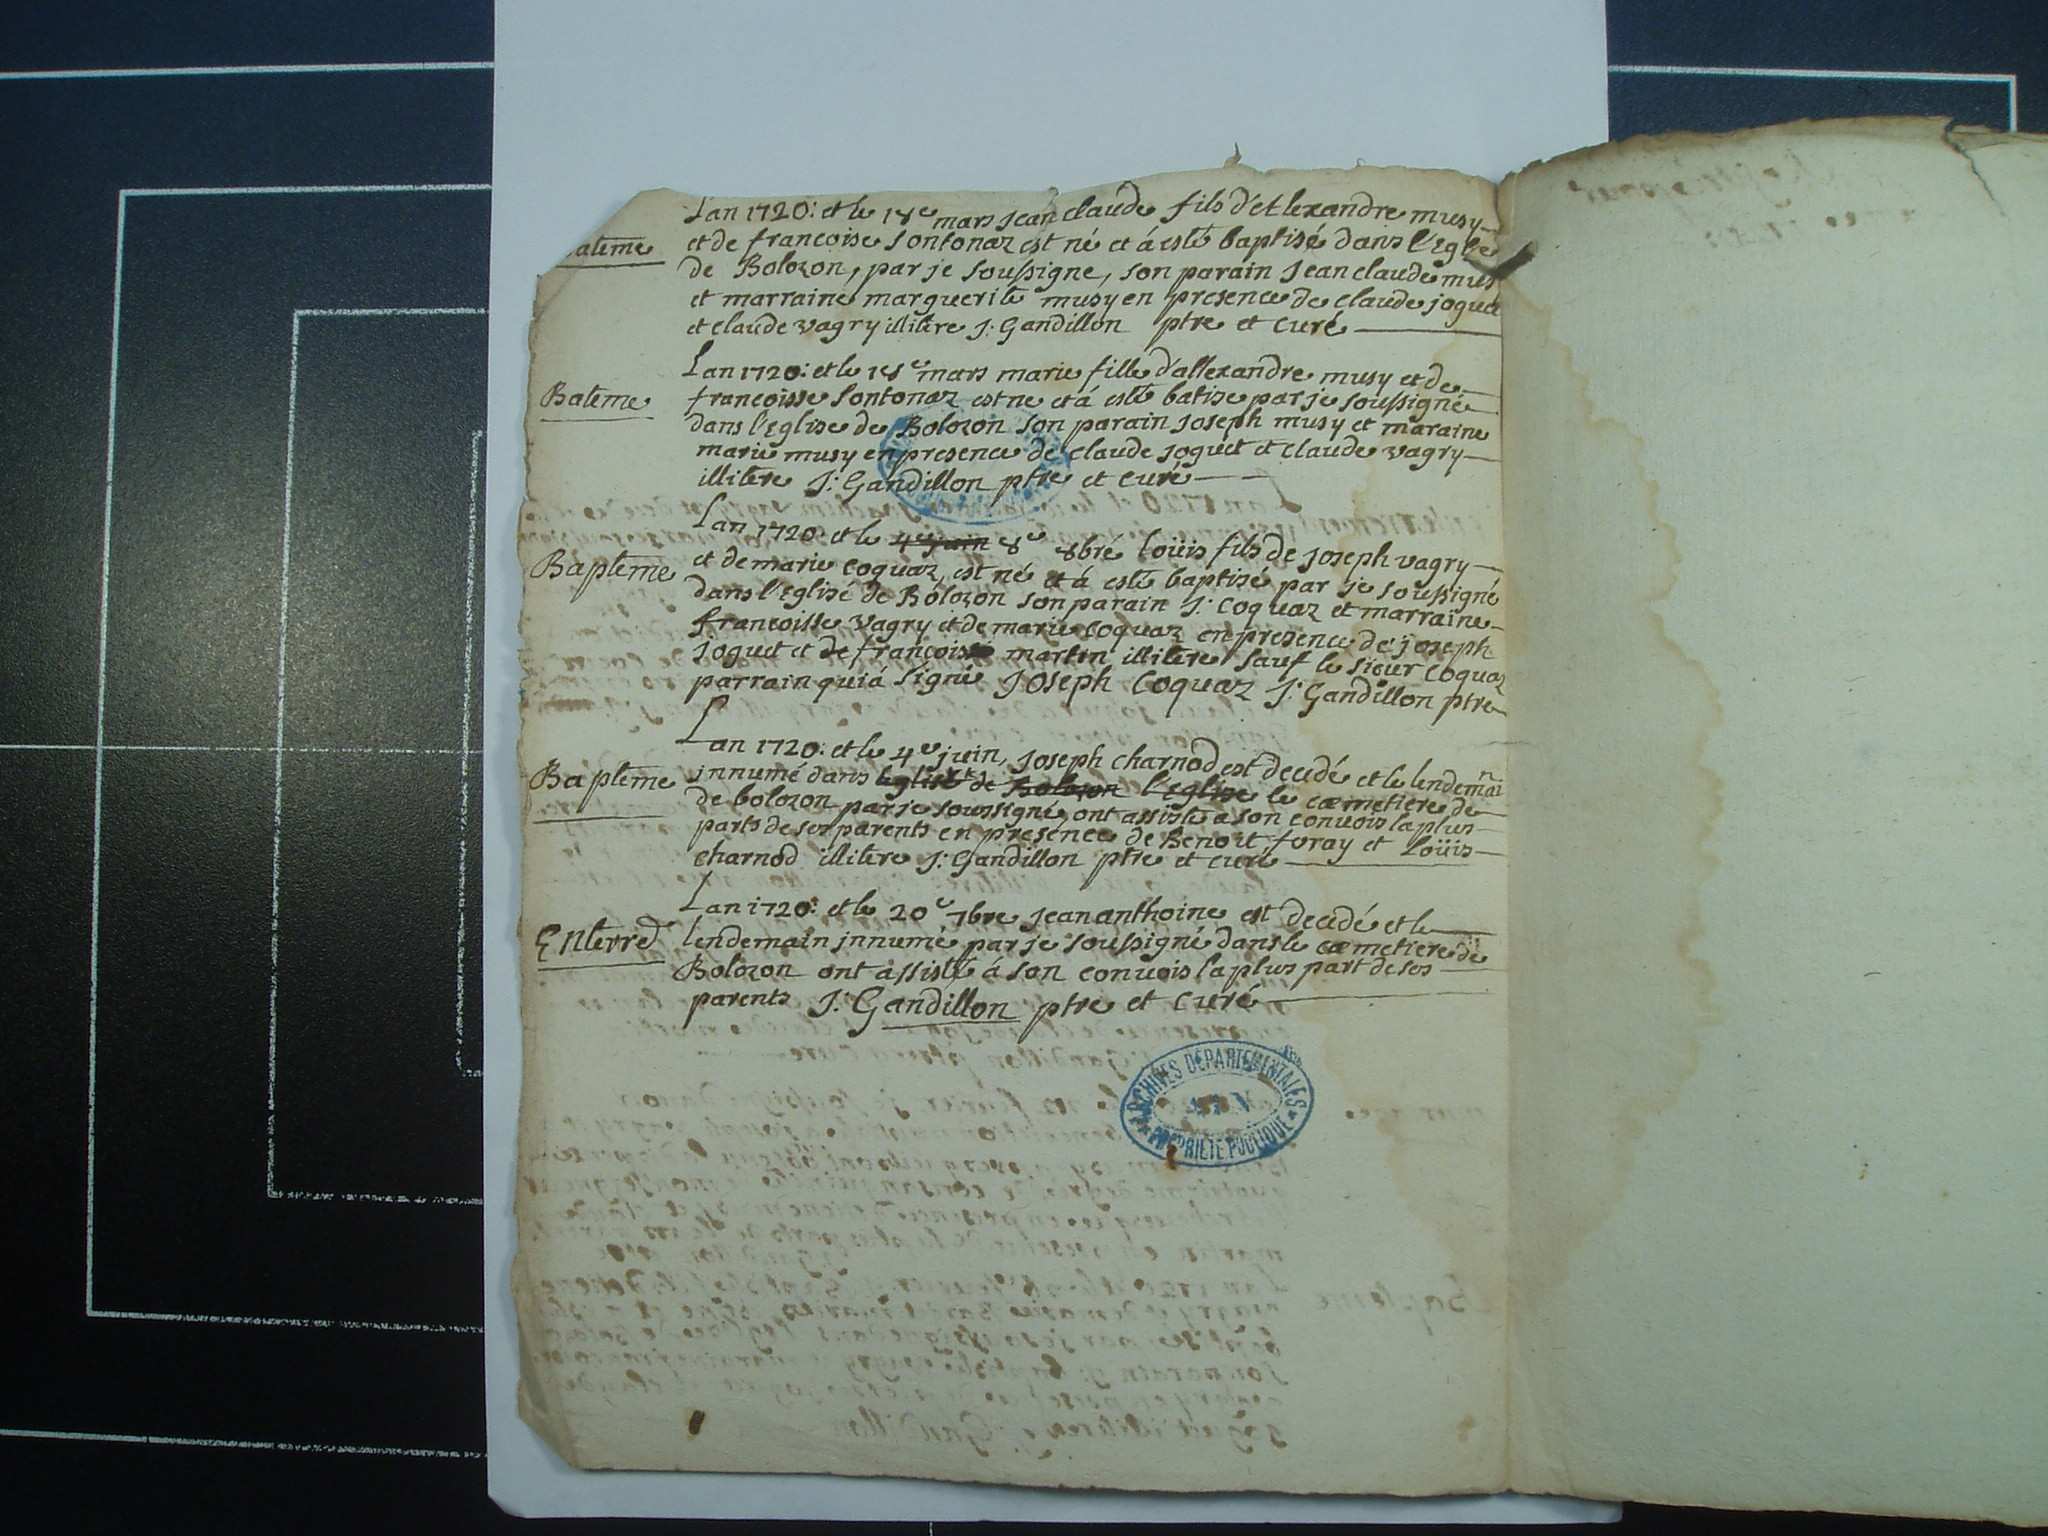 Lan 1720: et le 18e mars Jean claude fils d'etlexandre musy
et de francoise sontonaz est né et á esté baptisé dans l'Eglise
Bateme
de Bolozon, par je soussigne, son parain Jean claude mus
et marraine marguerite musy en presence de claude joguet
et claude vagry illitere J: Gandillon ptre et curé
Lan 1720: et le 18e mars marie fille d'allexandre musy et de
Bateme
francoisse sontonaz est ne et á esté batise par je soussigné
dans l'Eglise de Bolozon son parain Joseph musy et maraine
marie musy en presence de claude joguet et claude vagry
illitere J: Gandillon ptre et curé
Lan 1720: et le 4e juin 8e 8bre loüis fils de Joseph vagry
Bapteme
et de marie coquaz, est né et á esté baptisé par je soussigné
dans l'Eglisé de Bolozon son parain J: Coquaz et marraine
francoisse vagry et de marie coquaz en presence de joseph
joguet et de francois martin illitere sauf le sieur Coquaz
parrain qui á signé Joseph Coquaz J: Gandillon ptre
Lan 1720: et le 4e juin, Joseph charnod est decedé et le lendemain
Bapteme
innumé dans leglise de Bolozon l'Eglise le cœmetiere de
de bolozon par je soussigné, ont assisté a son convois la plus
parts de ses parents en presence de Benoit furay et Loüis
charnod illitere J: Gandillon ptre et curé
Lan 1720: et le 20e 7bre Jean anthoine est decedé et le
Enterred
lendemain innumé par je soussigné dans le cœmetiere de
Bolozon ont assisté á son convois la plus part de ses
parents J: Gandillon ptre et curé
ARCHIVES DÉPARTEMENTALES
AIN
PROPRIÉTÉ PUBLIQUE